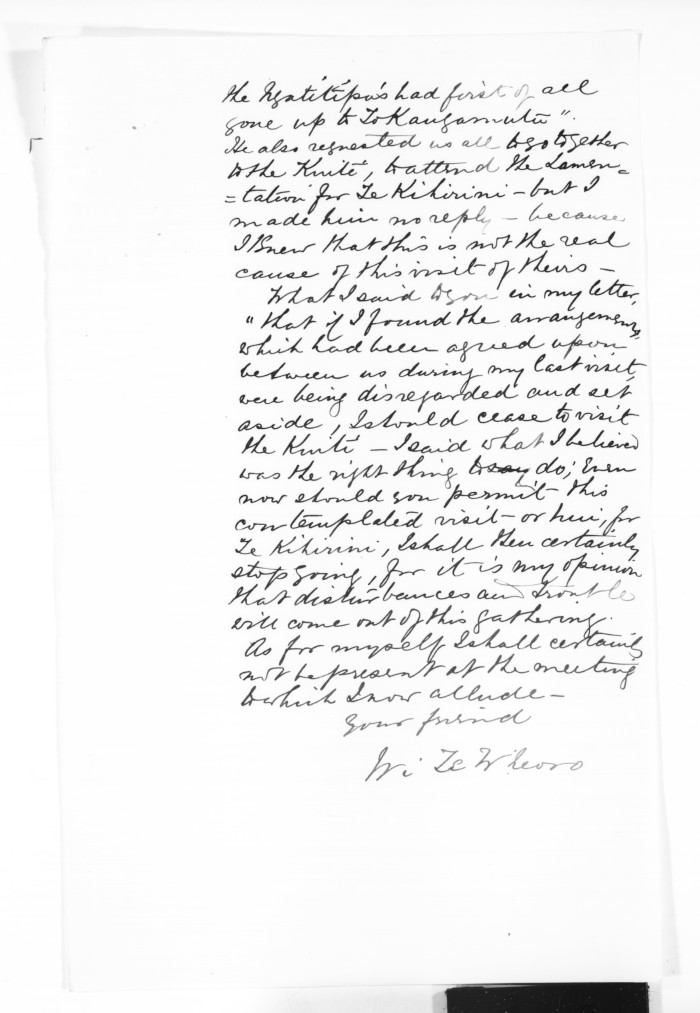 the Ngatitipa's had first of all
gone up to To Kangamutu".
He also requested us all to go together
to the Kuiti, to attend the Lamen=
=tation for Te Kihirini - but I
made him no reply - because
I knew that this is not the real
cause of this visit of theirs -
What I said to you in my letter,
"that if I found the arrangements
which had been agreed upon
between us during my last visit,
were being disregarded and set
aside, I should cease to visit
the Kuiti - I said what I believed
was the right thing to say do; Even
now should you permit this
contemplated visit - or hui, for
Te Kihirini, I shall then certainly
stop going, for it is my opinion
that disturbances and trouble
will come out of this gathering.
As for myself I shall certainly
not be present at the meeting
to which I now allude -
Your friend
Wi Te Wheoro